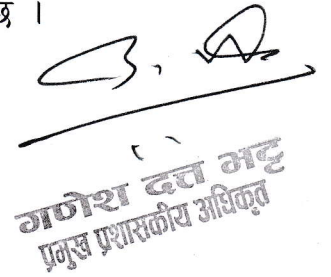 छ ।
गणेश दत्त भट्ट
प्रमुख प्रशासकीय अधिकृत